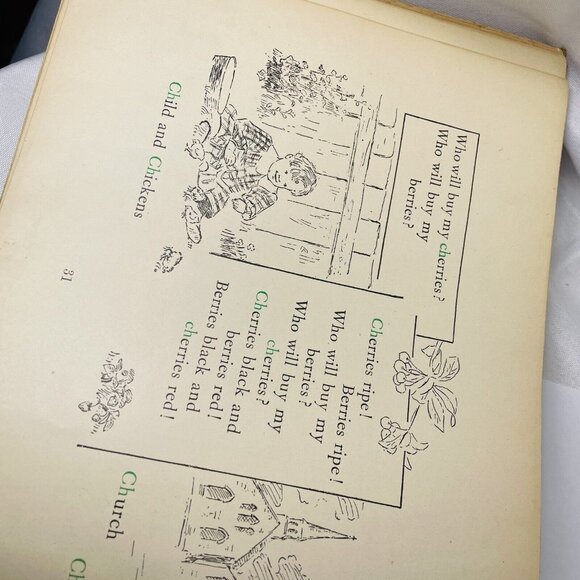 Who will buy my cherries?
Who will buy my
berries?
Cherries ripe!
Berries ripe!
Who will buy my
berries?
Who will buy my
cherries?
Cherries black and
berries red!
Berries black and
cherries red!
Child and Chickens
31
Church
Ch